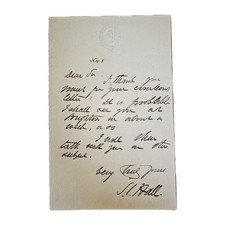 Dear Sir. I thank you
much for your courteous
letter. It is probable
I shall see you at
Brighton in about a
week, or so
I will then
talk with you on the
subject.
Very Truly yours
S.C. Hall.